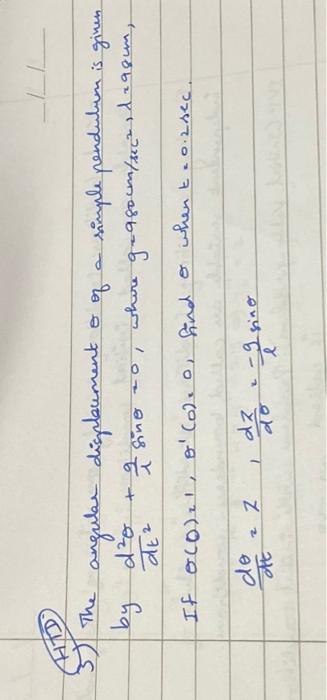 HTD
3) The angular displacement θ of a simple pendulum is given
by d²θ/dt² + g/l sinθ = 0, where g = 980cm/sec², l = 98cm,
If θ(0) = 1, θ'(0) = 0, find θ when t = 0.2sec.
dθ/dt = z, dz/dθ = -g/l sinθ